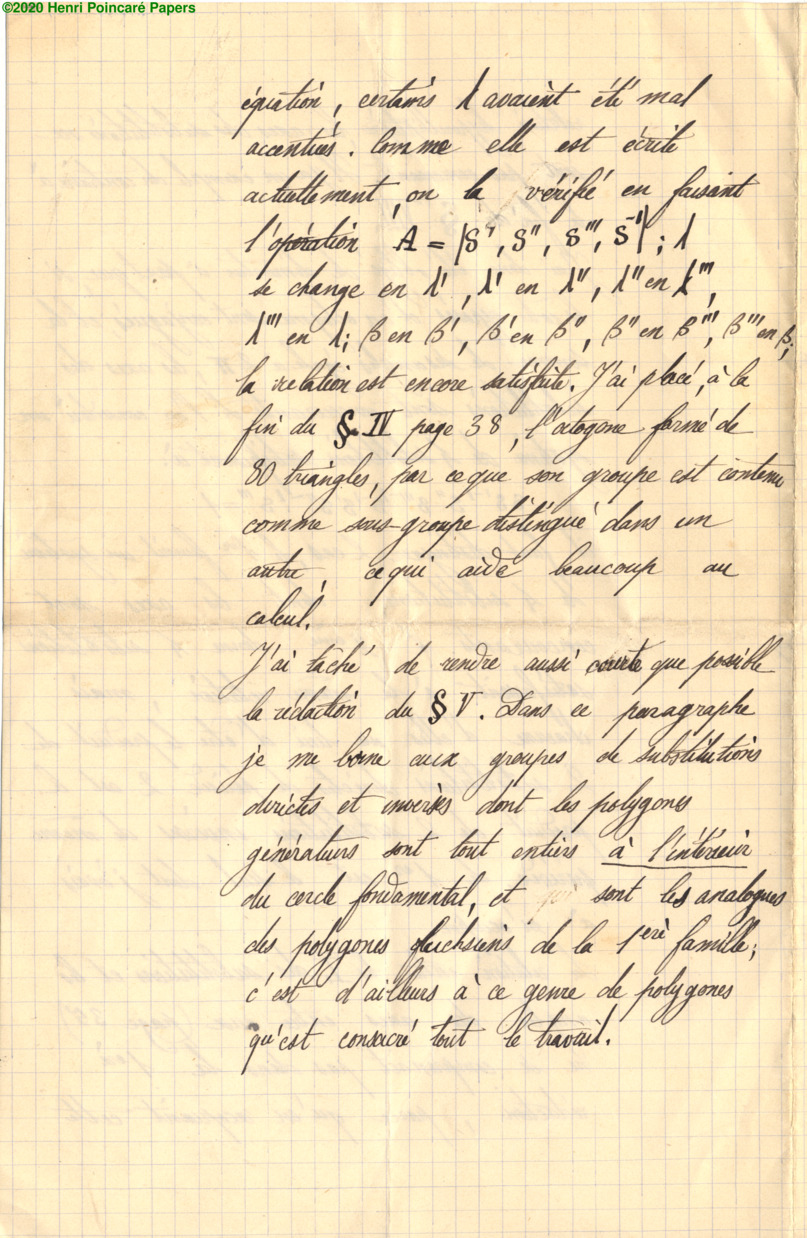 ©2020 Henri Poincaré Papers
équation, certains λ avaient été mal
accentués. Comme elle est écrite
actuellement, on la vérifié en faisant
l'opération A = |S', S'', S''', S⁻¹| ; λ
se change en λ', λ' en λ'', λ'' en λ''',
λ''' en λ; β en β', β' en β'', β'' en β''', β''' en β;
la relation est encore satisfaite. J'ai placé, à la
fin du § IV page 38, l'octogone formé de
80 triangles, par ce que son groupe est contenu
comme sous-groupe distingué dans un
autre, ce qui aide beaucoup au
calcul.
J'ai tâché de rendre aussi courte que possible
la rédaction du § V. Dans ce paragraphe
je me borne aux groupes de substitutions
directes et inverses dont les polygones
générateurs sont tout entiers à l'intérieur
du cercle fondamental, et sont les analogues
des polygones fuchsiens de la 1ère famille;
c'est d'ailleurs à ce genre de polygones
qu'est consacré tout le travail.